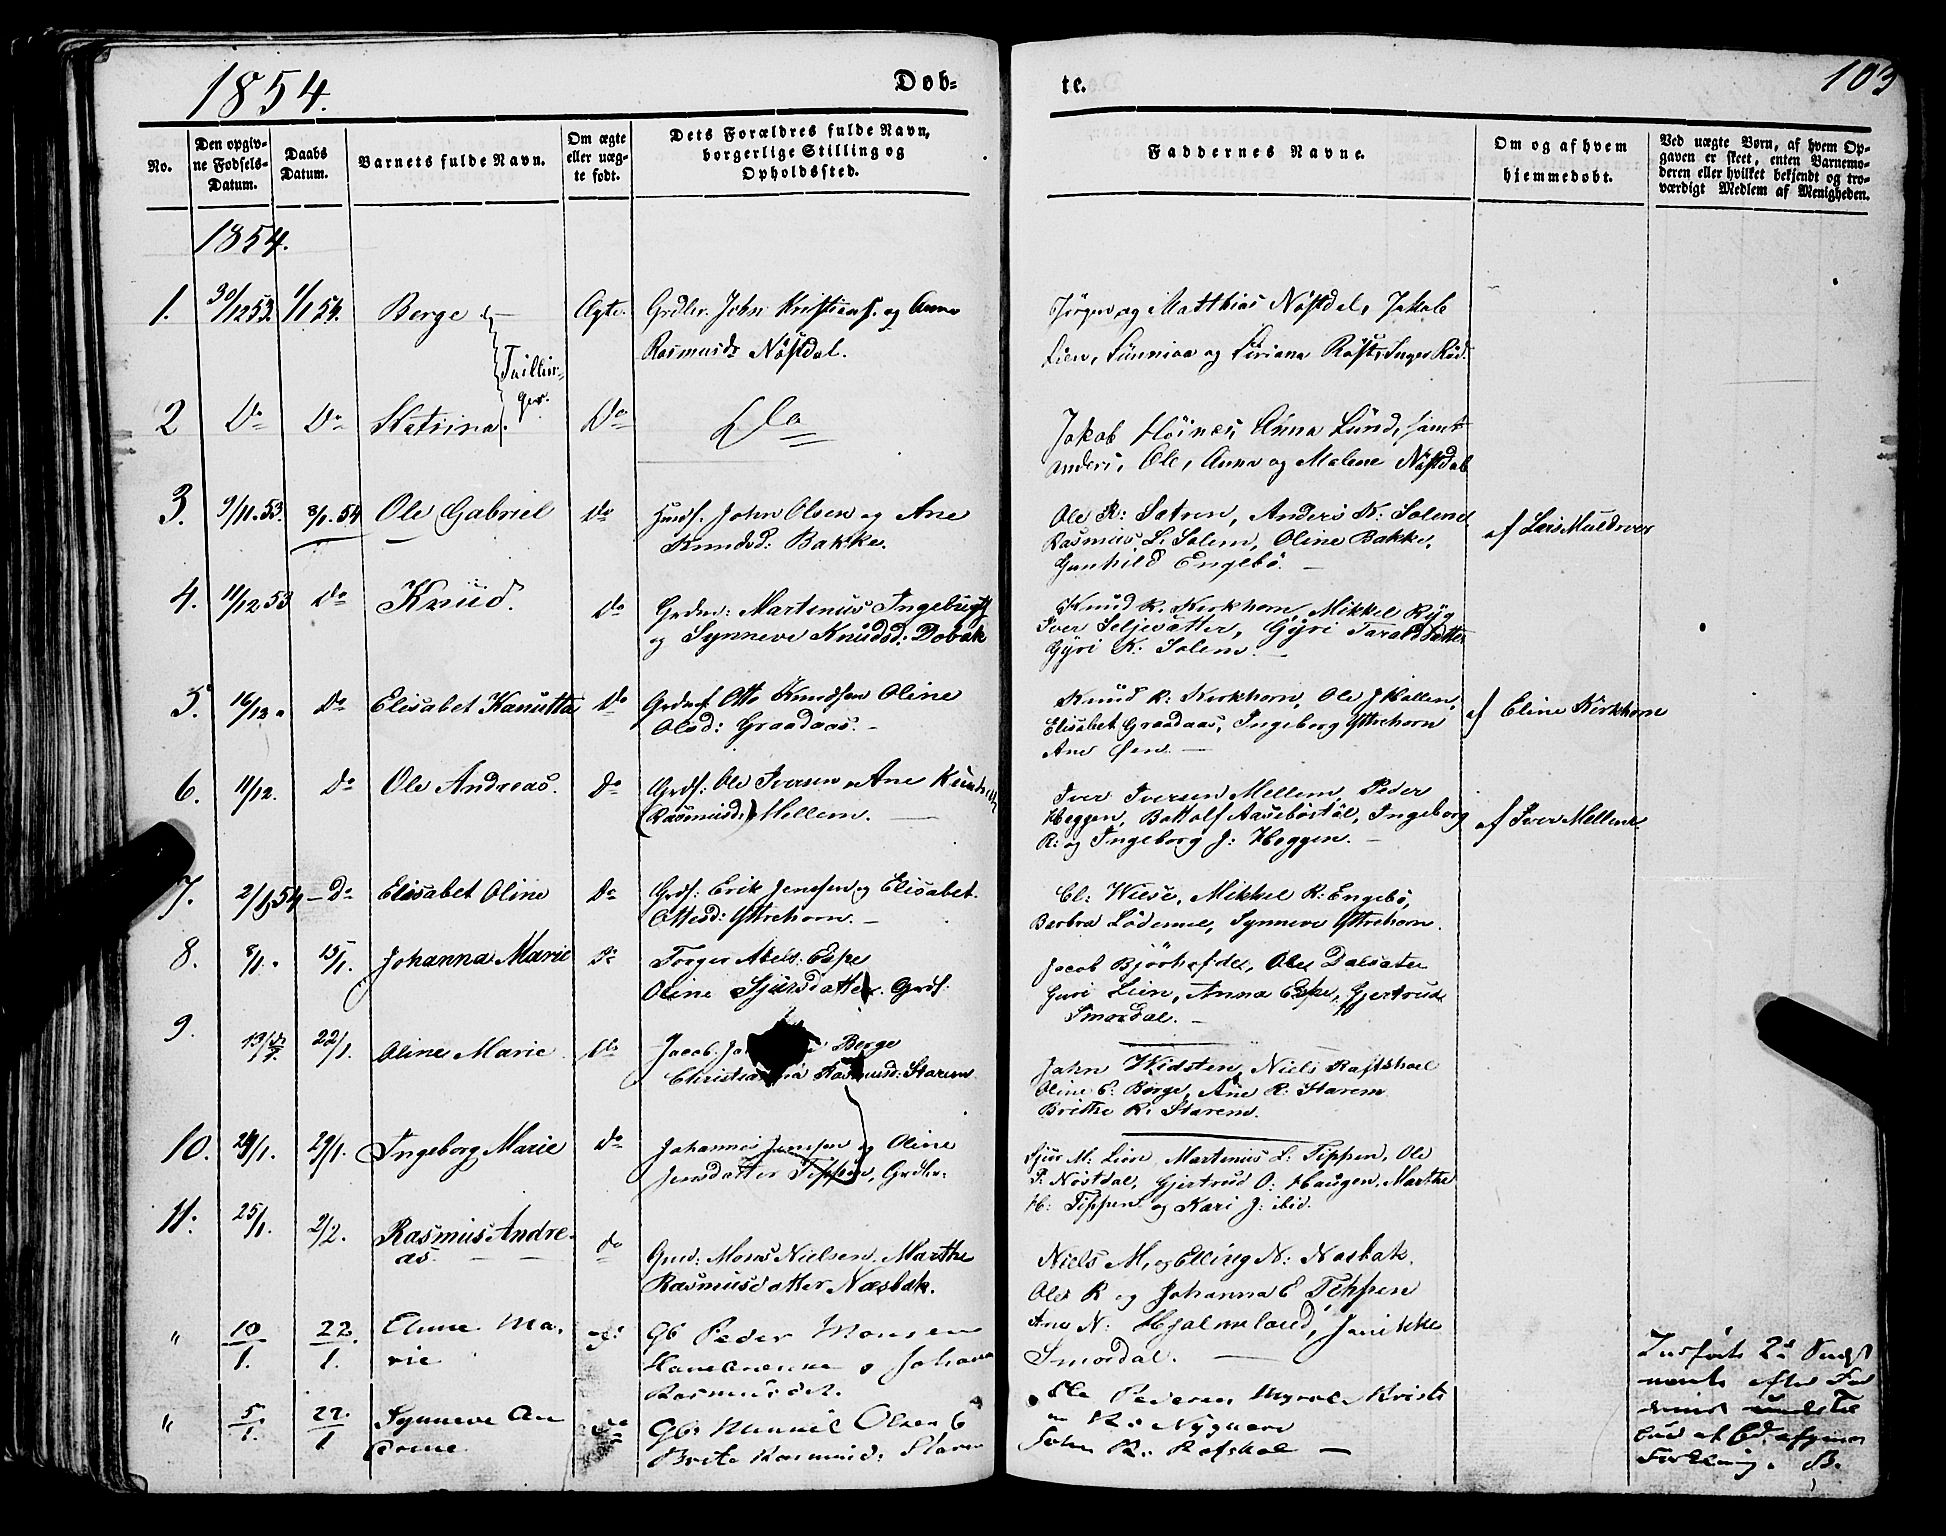 1854.
Døb-
te.
103
No.
Den opgiv-
ne Fødsels-
Datum.
Daabs
Datum.
Barnets fulde Navn.
Om ægte
eller uæg-
te født.
Dets Forældres fulde Navn,
borgerlige Stilling og
Opholdssted.
Faddernes Navne.
Om og af hvem
hjemmedøbt.
Ved uægte Børn, af hvem Op-
gaven er skeet, enten Barnemo-
deren eller hvilket bekjendt og tro-
værdigt Medlem af Menigheden.
1854.
1. 30/12 53. 1/1 54. Berge Ægte. Grdbr. John Kristians. og Anna
Rasmusd. Nöstdal.
Jörgen og Matthias Nöstdal, Jakob
Lien, Sünniva og Siriana Röst, Inger
Tvillin-
ger.
2 Do Do Katrina. Do Do
Jakob Höines, Anna Lund, samt
Anders, Ole, Anna og Malene Nöstdal
3. 9/11. 53. 8/1. 54 Ole Gabriel Do Husf. John Olsen og Ane
Knudsd: Bakke.
Ole R: Sætren, Anders K: Solem
Rasmus L: Solem, Oline Bakke,
Gunhild Engebö. —
af Lars
4. 11/12 53 Do Knud. Do Grdm: Martinus Ingebrigts
og Synneve Knudsd: Dobak
Knud R. Kirkhorn, Mikkel Ryg
Iver Seljesætter, Gÿri Taraldsdatter
Gÿri K: Solem. —
5. 16/12 " Do Elisabet Kanutta Do Grdmf. Otto Knudsen Oline
Olsd: Graadaas. —
Knud R: Kirkhorn, Ole J Hollen,
Elisabet Graadaas, Ingeborg Yttrehorn
Ane Øen. —
af Eline Kirkhorn
6. 11/12. Do Ole Andreas. Do Grdf: Ole Iversen Ane
(Rasmusd:) Mellem. —
Iver Iversen Mellem, Peder
Heggen, Bottolf Aaseböstöl, Ingeborg
R: og Ingeborg J: Heggen. —
af Iver Mellem
7. 2/1 54 — Do Elisabet Oline Do Grdf: Erik Jensen og Elisabet
Ottesd: Yttrehorn. —
Cl: Wiese, Mikkel R: Engebö,
Barbra Lödemel, Synneve Yttrehorn.
8. 8/1. " 15/1. Johanna Marie Do Torger Abels: Espe
Oline Sjursdatter. Grdf:
Jacob Björhofde, Ole Dalsæter
Guri Lien, Anna Espe, Gjertrude
Smordal. —
9. 13/1. 22/1. Oline Marie Do Jacob Berge
Rasmusd: Starem
John Widsten, Niels Rafskoel
Oline E. Berge, Ane R: Starem
Brithe R: Starem.
10. 24/1. 29/1. Ingeborg Marie do Johannes Jensen og Oline
Jensdatter Tippen, Grdbr.
Sjur M: Lien, Martinus L: Tippen, Ole
P. Nöstdal, Gjertrud O: Haugen, Marthe
H: Tippen og Kari J: ibid.
11. 25/1. 2/2. Rasmus Andre-
as. — — do Gmd: Mons Nielsen. Marthe
Rasmusdatter Næsbak.
Niels M. og Elling N: Næsbak.
Ole R og Johanna E Tippen
Ane N. Hjalmeland, Janikke
Smordal. —
" 10/1. 22/1. Anne Ma-
rie Gb Peder Monsen
og Johana
Rasmusdt.
Ole Pedersen
" 5/1. 22/1 Synneve An
do Gb: Olsen &
Brite Rasmusd: Starem
R: Nygaard
John R: Rafskol —
Indførte
B.